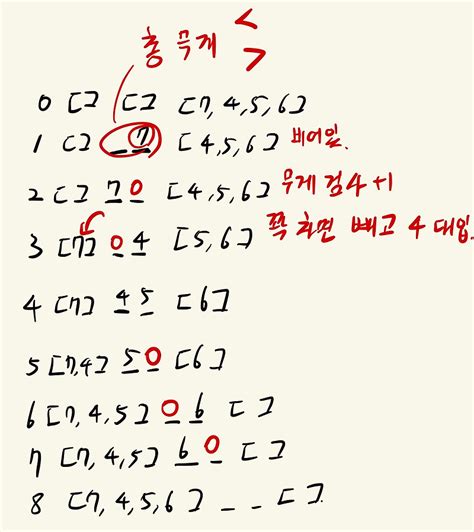 총 무게 < >
0 [] [] [7, 4, 5, 6]
1 [] _ 7 [4, 5, 6] 비어있
2 [] 7 0 [4, 5, 6] 무게 검사 +1
3 [7] 0 4 [5, 6] 꽉 차면 빼고 4 대입
4 [7] 4 5 [6]
5 [7, 4] 5 0 [6]
6 [7, 4, 5] 0 6 []
7 [7, 4, 5] 6 0 []
8 [7, 4, 5, 6] _ _ []